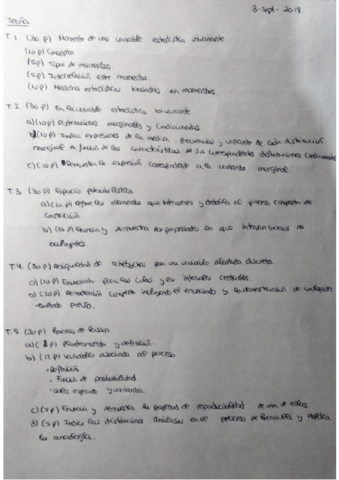 3-Sept-2019
Teoría
T.1 (30 p) Momentos de una variable estadística univariante
(10 p) Concepto
(5 p) Tipos de momentos
(5 p) Interrelación entre momentos.
(10 p) Medidas estadísticas basadas en momentos.
T.2 (30 p) En la variable estadística bivariante
a) (10 p) Distribuciones marginales y condicionadas
b) (10 p) Indica expresiones de la media y varianza de cada distribución
marginal en función de las características de las correspondientes distribuciones condicionadas
c) (10 p) Demuestra la expresión correspondiente a la varianza marginal.
T.3 (30 p) Espacio probabilístico
a) (10 p) elementos que intervienen y detalla el proceso completo de
construcción
b) (10 p) Enuncia y demuestra dos propiedades en que intervienen sucesos no
excluyentes
T.4. (30 p) Desigualdad de Tchebycheff para una variable aleatoria discreta.
a) (10 p) Enunciado para las colas y los intervalos centrales.
b) (20 p) Demostración completa incluyendo el enunciado y la demostración de cualquier
resultado previo.
T.5 (30 p) Proceso de Poisson
a) (8 p) Planteamiento y definición.
b) (12 p) Variables asociadas al proceso
- Definición
- Función de probabilidad
- valor esperado y varianza.
c) (5 p) Enuncia y demuestra la propiedad de reproducibilidad de una de ellas
d) (5 p) Indica las distribuciones análogas en el proceso de Bernoulli y explica
la analogía.